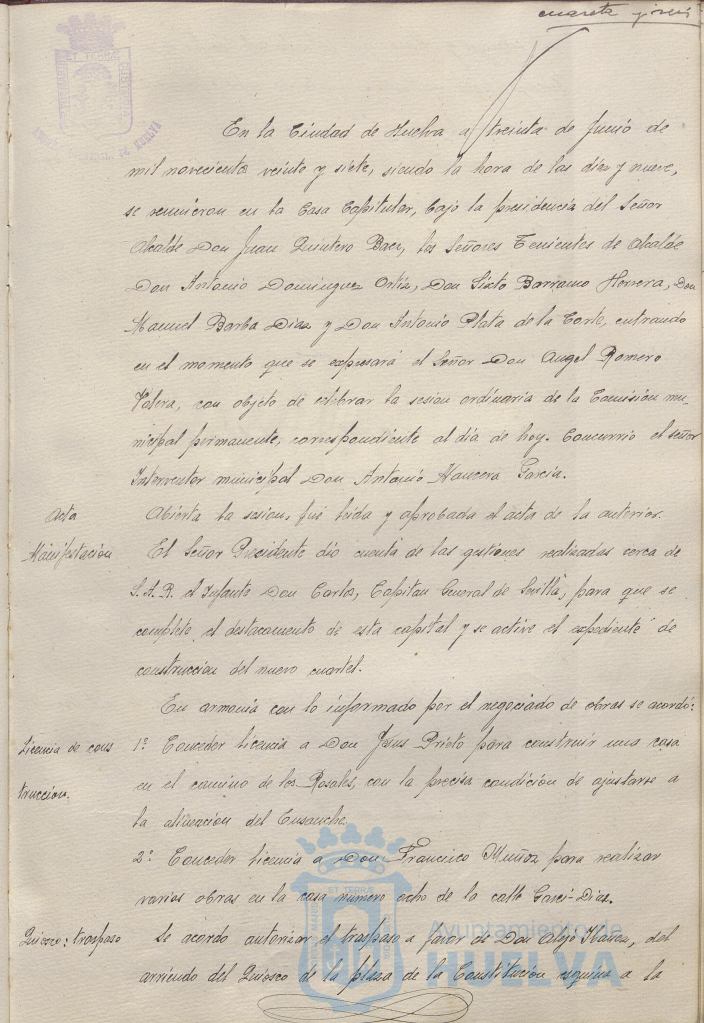 cuarenta y seis
En la Ciudad de Huelva a treinta de Junio de
mil novecientos veinte y siete, siendo la hora de las diez y nueve,
se reunieron en la Casa Capitular, bajo la presidencia del Señor
Alcalde Don Juan Quintero Baez, los Señores Tenientes de Alcalde
Don Antonio Dominguez Ortiz, Don Sixto Barranco Herrera, Don
Manuel Barba Diaz y Don Antonio Plata de la Corte, entrando
en el momento que se expresará el Señor Don Angel Romero
Valera, con objeto de celebrar la sesion ordinaria de la Comisión mu-
nicipal permanente, correspondiente al día de hoy. Concurrió el señor
Interventor municipal Don Antonio Mancera Garcia.
Acta
Abierta la sesion, fué leida y aprobada el acta de la anterior.
Manifestación
El Señor Presidente dió cuenta de las gestiones realizadas cerca de
S.A.R. el Infante Don Carlos, Capitan General de Sevilla, para que se
complete el destacamento de esta capital y se active el expediente de
construccion del nuevo cuartel.
En armonia con lo informado por el negociado de obras se acordó:
Licencia de cons
trucción.
1º Conceder licencia a Don Jesus Prieto para construir una casa
en el camino de los Rosales, con la precisa condición de ajustarse a
la alineacion del Ensanche.
2º Conceder licencia a Don Francisco Muñoz para realizar
varias obras en la casa numero ocho de la calle Garci-Diaz.
Quiosco: traspaso
Se acordo autorizar el traspaso a favor de Don Alejo Ibañez, del
arriendo del Quiosco de la plaza de la Constitucion esquina a la
Ayuntamiento de
HUELVA